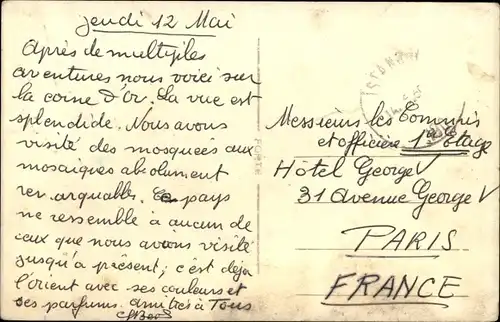 Jeudi 12 Mai
Après de multiples
aventures nous voici sur
la corne d'Or. La vue est
splendide. Nous avons
visité des mosquées aux
mosaïques absolument
remarquables. Ce pays
ne ressemble à aucun de
ceux que nous avions visité
jusqu'à présent; c'est déjà
l'orient avec ses couleurs et
ses parfums. Amitiés à Tous
Messieurs les Commis
et officiers 1er Etage
Hôtel George V
31 Avenue George V
PARIS
FRANCE